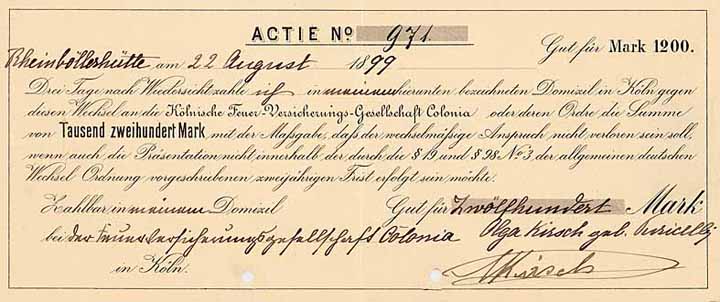 ACTIE No 971.
Gut für Mark 1200.
Rheinböllerhütte am 22 August 1899
Drei Tage nach Wiedersicht zahle ich in meinem hierunten bezeichneten Domizil in Köln gegen
diesen Wechsel an die Kölnische Feuer-Versicherungs-Gesellschaft Colonia oder deren Ordre die Summe
von Tausend zweihundert Mark mit der Maßgabe, daß der wechselmäßige Anspruch nicht verloren sein soll,
wenn auch die Präsentation nicht innerhalb der durch die § 19 und § 98 No 3, der allgemeinen deutschen
Wechsel Ordnung vorgeschriebenen zweijährigen Frist erfolgt sein möchte.
Zahlbar in meinem Domizil Gut für Zwölfhundert Mark
bei der Feuerversicherungsgesellschaft Colonia Olga Kirsch geb.
in Köln. Kirsch